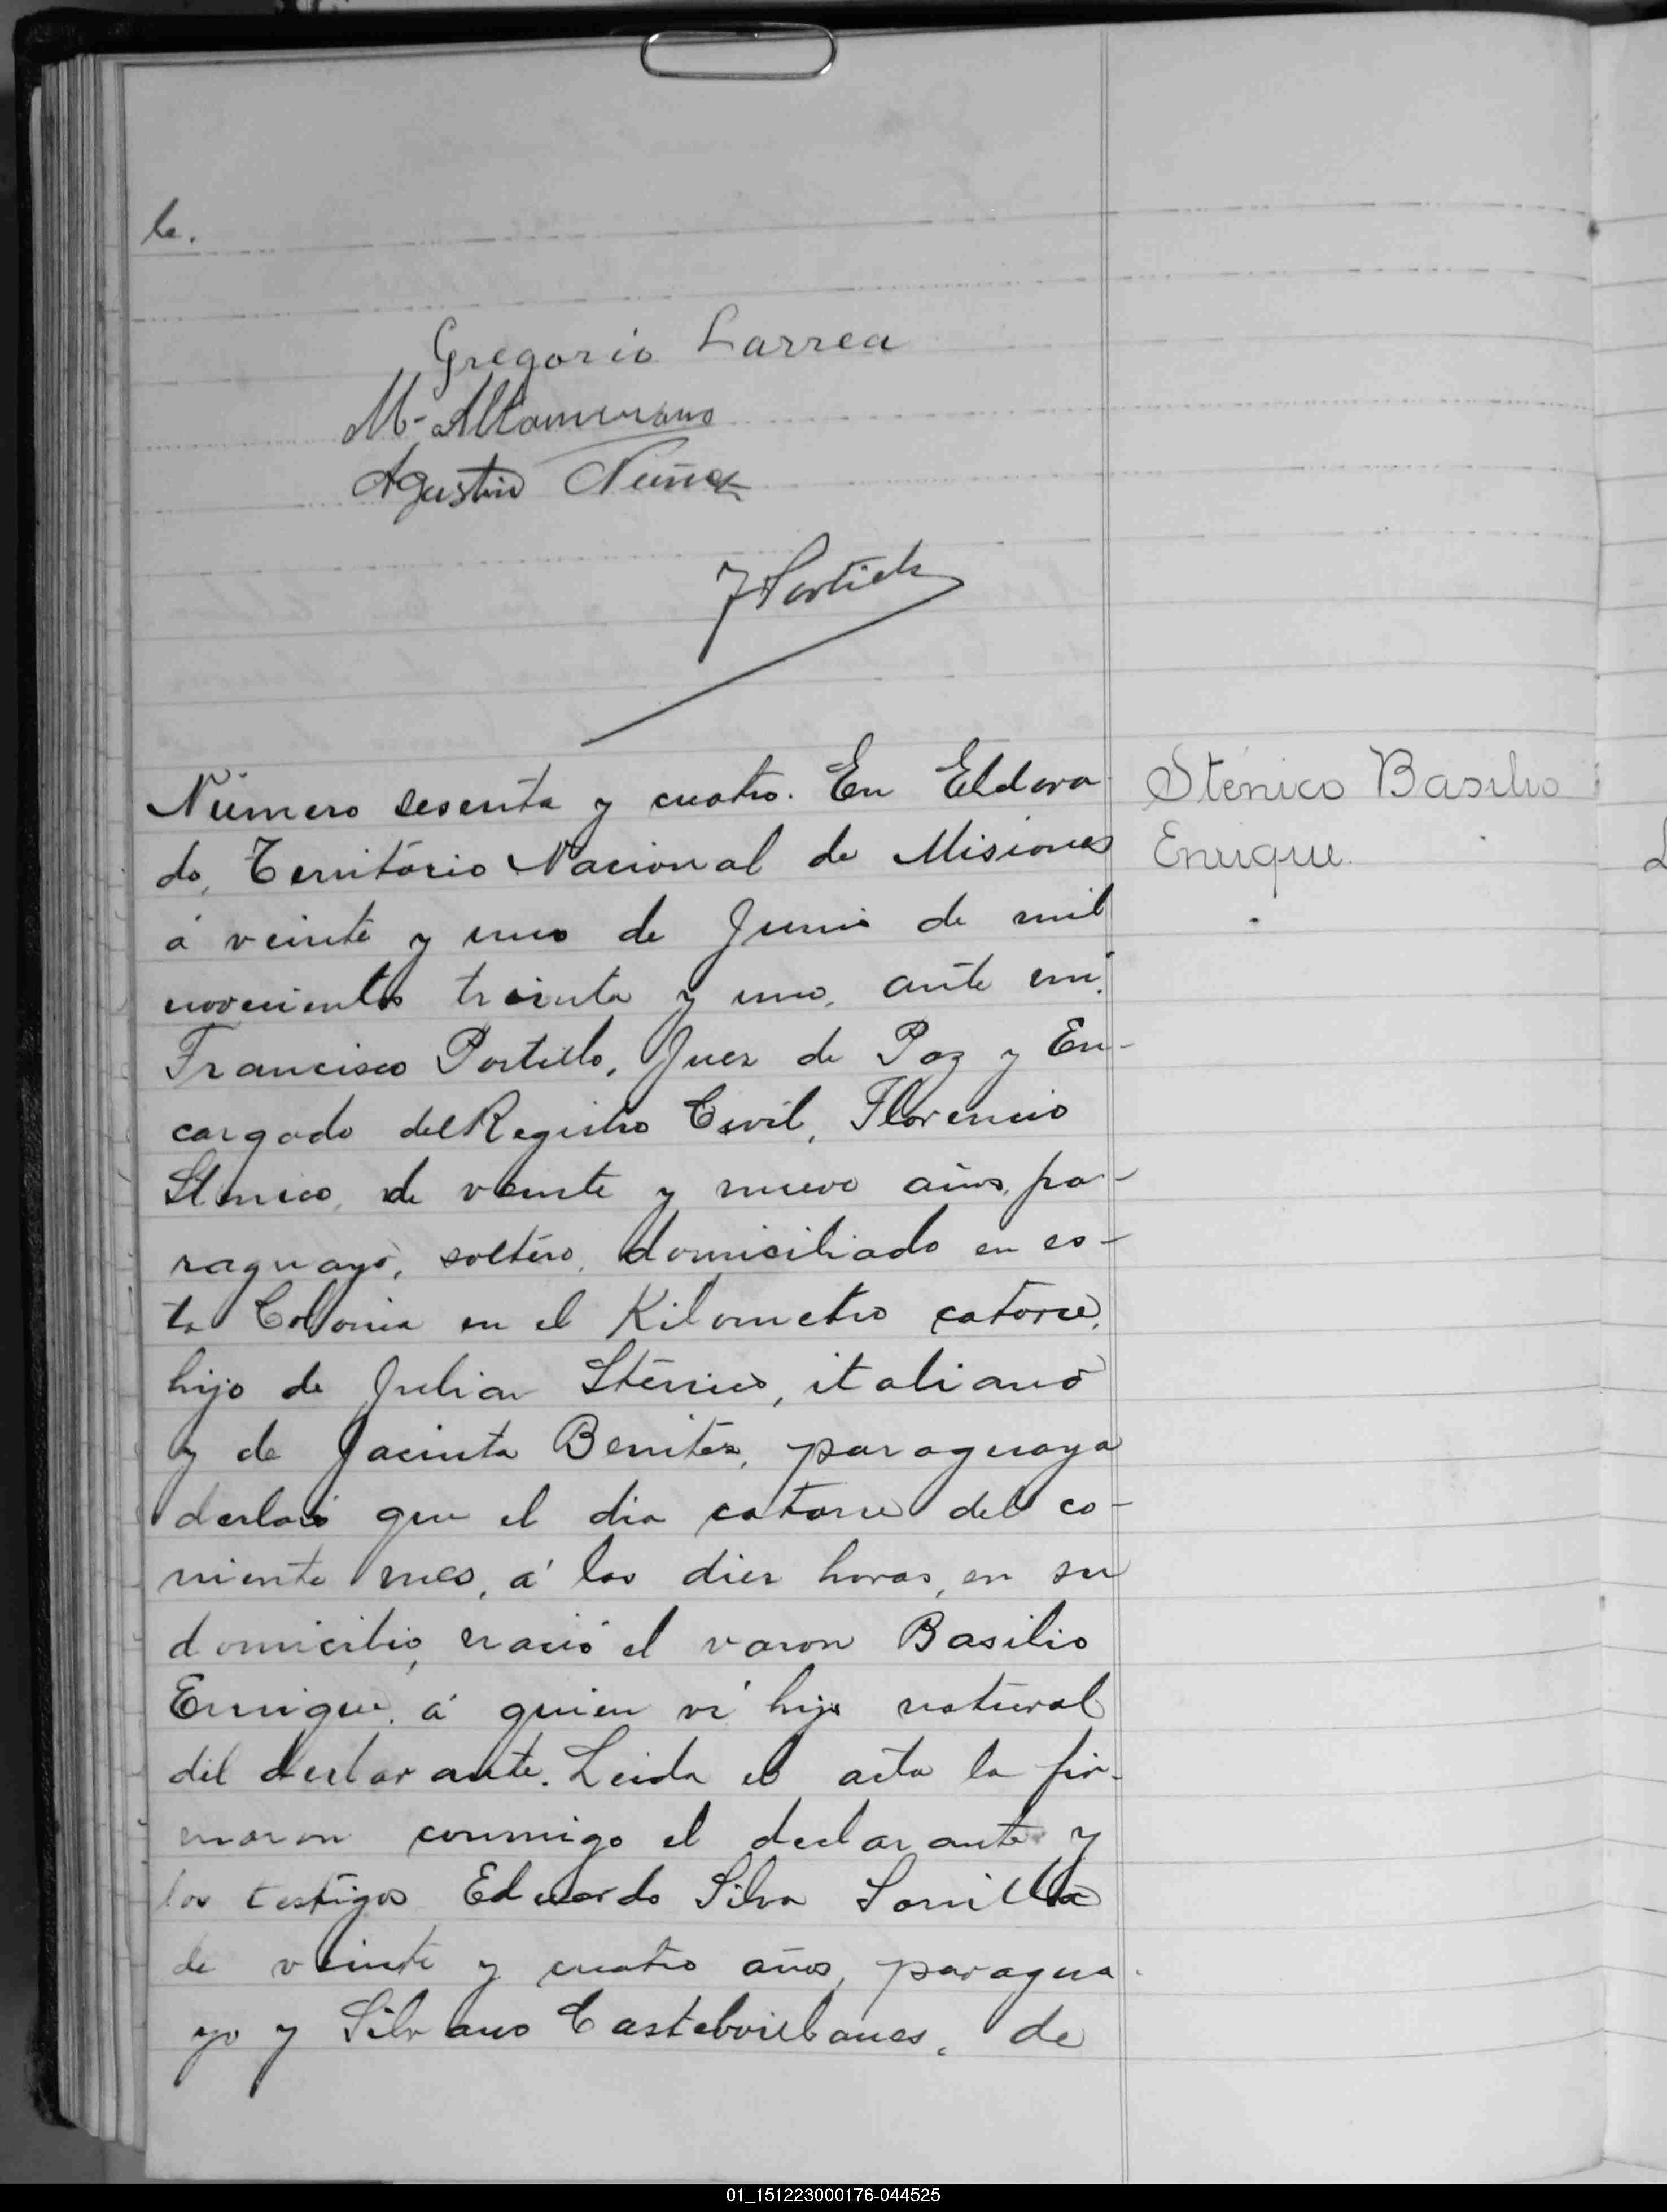 le.
Gregorio Larrea
M. Altamirano
Agustin Nuñez
Número sesenta y cuatro. En Eldora-
do, Territorio Nacional de Misiones
á veinte y uno de Junio de mil
novecientos treinta y uno, ante mí,
Francisco Portillo, Juez de Paz y En-
cargado del Registro Civil, Florencio
Stenico, de veinte y nueve años, pa-
raguayo, soltero, domiciliado en es-
ta Colonia en el Kilometro catorce,
hijo de Julian Stenico, italiano
y de Jacinta Benitez, paraguaya
declaró que el dia catorce del co-
rriente mes, á las diez horas, en su
domicilio, nació el varon Basilio
Enrique, á quien ví hijo natural
del declarante. Leida el acta la fir-
maron conmigo el declarante y
los testigos Eduardo Silva
de veinte y cuatro años, paragua-
yo y Silvano de
Sténico Basilio
Enrique.
01_151223000176-044525